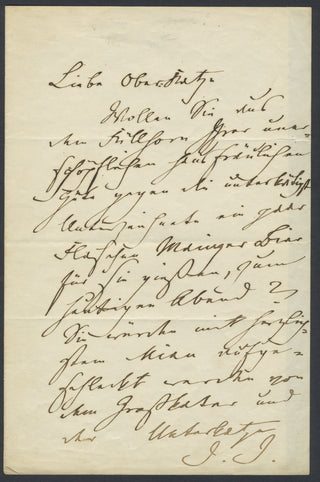 Liebe Oberkatze
Wollen Sie aus
dem Füllhorn Ihrer uner-
schöpflichen hausfräulichen
Güte gegen die unterkätzigst
Unterzeichnete ein paar
Flaschen Mainzer Bier
für sie gießen, zum
heutigen Abend?
Sie würden mit herzlich-
stem Miau aufge-
schleckt werden von
dem Großkater und
der Unterkatze
J. J.